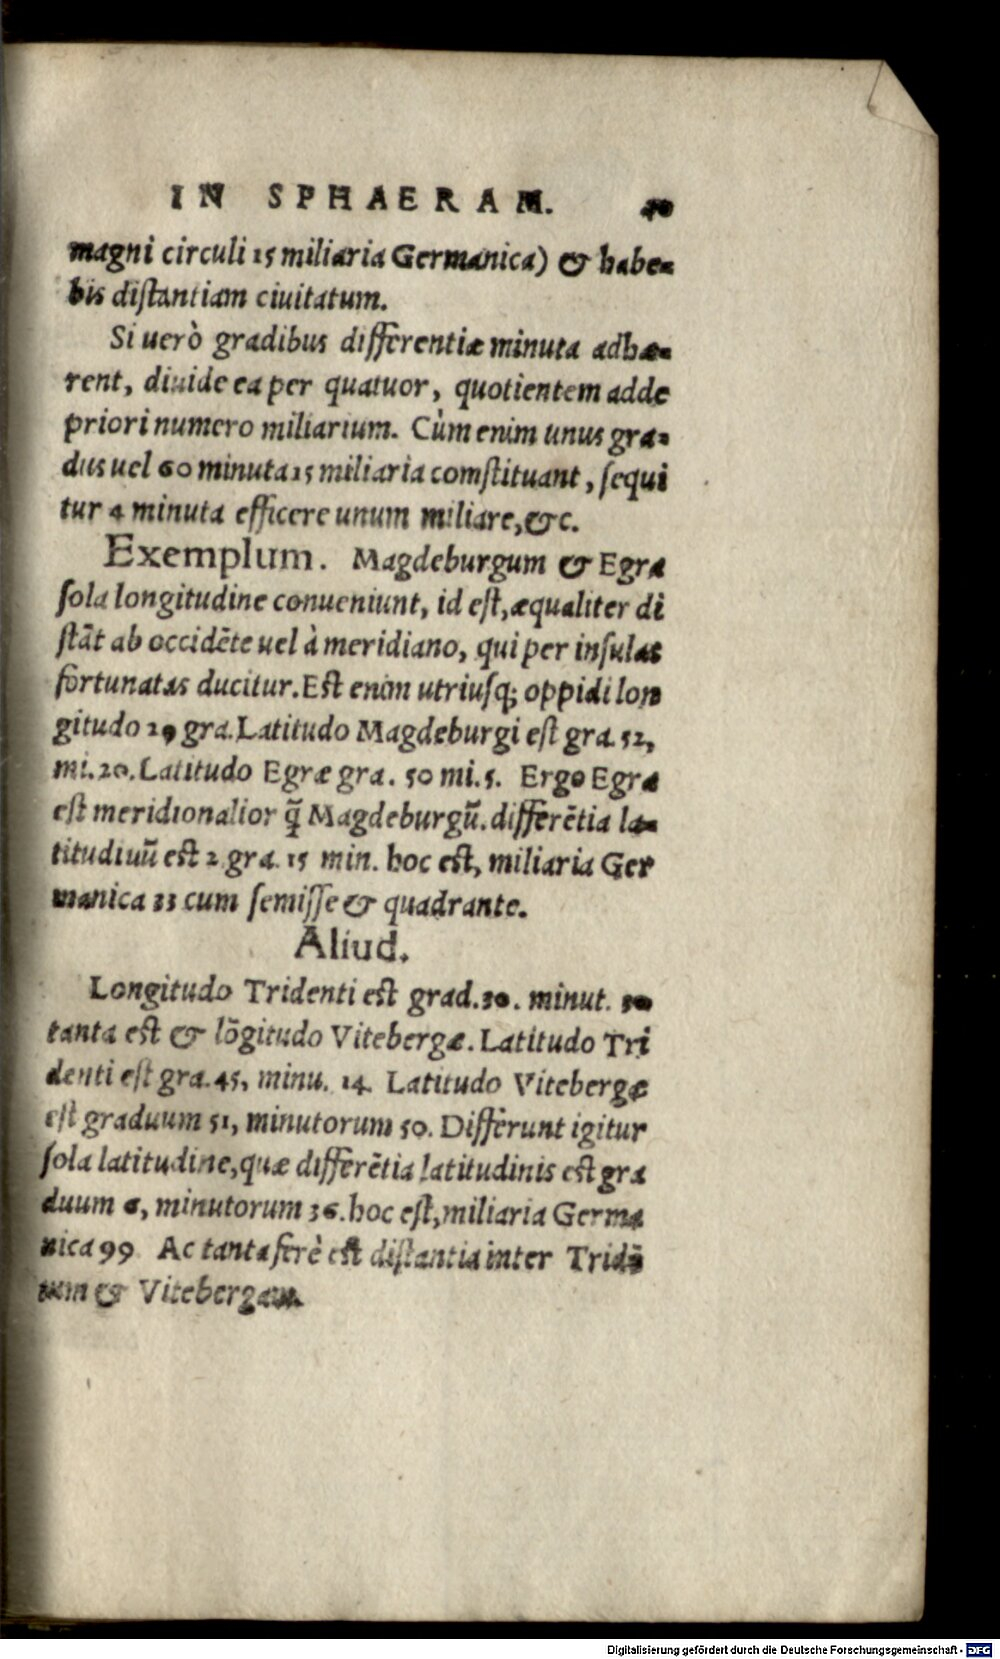 IN SPHAERAM. 40
magni circuli 15 miliaria Germanica) & habe=
bis distantiam ciuitatum.
Si uerò gradibus differentiæ minuta adhæ=
rent, diuide ea per quatuor, quotientem adde
priori numero miliarium. Cùm enim unus gra=
dus uel 60 minuta 15 miliaria comstituant, sequi
tur 4 minuta efficere unum miliare, &c.
Exemplum. Magdeburgum & Egra
sola longitudine conueniunt, id est, æqualiter di
stāt ab occidēte uel à meridiano, qui per insulas
fortunatas ducitur. Est enim utriusq; oppidi lon
gitudo 29 gra. Latitudo Magdeburgi est gra. 52,
mi. 20. Latitudo Egræ gra. 50 mi. 5. Ergo Egra
est meridionalior q̄ Magdeburgū. differētia la=
titudiuū est 2 gra. 15 min. hoc est, miliaria Ger
manica 33 cum semisse & quadrante.
Aliud.
Longitudo Tridenti est grad. 30. minut. 30
tanta est & lōgitudo Vitebergæ. Latitudo Tri
denti est gra. 45, minu. 14. Latitudo Vitebergæ
est graduum 51, minutorum 50. Differunt igitur
sola latitudine, quæ differētia latitudinis est gra
duum 6, minutorum 36. hoc est, miliaria Germa
nica 99 Ac tanta ferè est distantia inter Tridē
tum & Vitebergam.
Digitalisierung gefördert durch die Deutsche Forschungsgemeinschaft - DFG